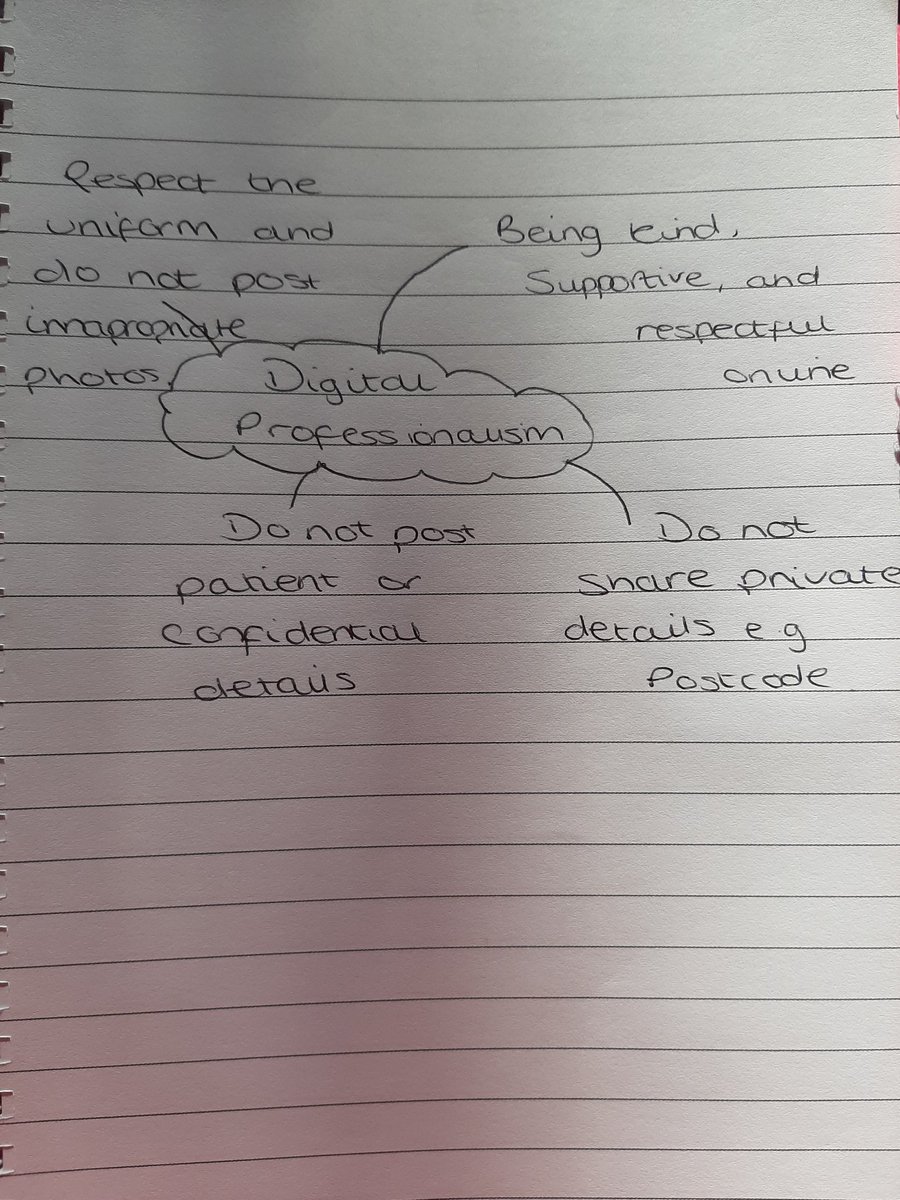 Respect the
uniform and
do not post
innapropriate
photos
Being kind,
Supportive, and
respectful
online
Digital
Professionalism
Do not post
patient or
confidential
details
Do not
share private
details e.g
Postcode